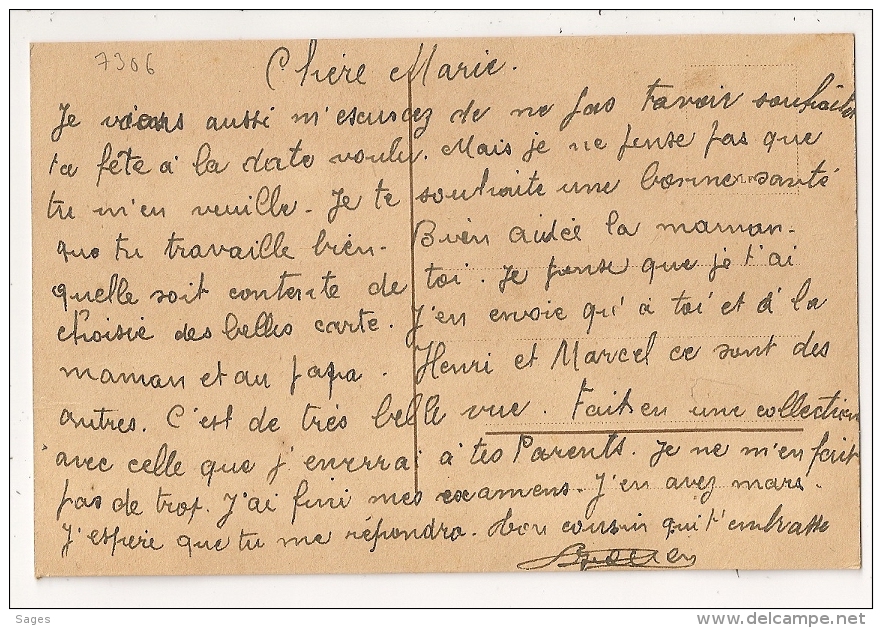 7306
Chère Marie.
Je viens aussi m'escusez de ne pas t'avoir souhaiter
ta fête à la date voulu. Mais je ne pense pas que
tu m'en veuille. Je te souhaite une bonne santé
que tu travaille bien. Bien aidée la maman.
quelle soit contente de toi. Je pense que je t'ai
choisie des belles carte. J'en envoie qu'à toi et à la
maman et au papa. Henri et Marcel ce sont des
autres. C'est de très belle vue. Fait en une collection
avec celle que j'enverrai à tes Parents. Je ne m'en fait
pas de trop. J'ai fini mes examens. J'en avez mars.
J'espère que tu me répondra. Ton cousin qui t'embrasse
Sages
www.delcampe.net